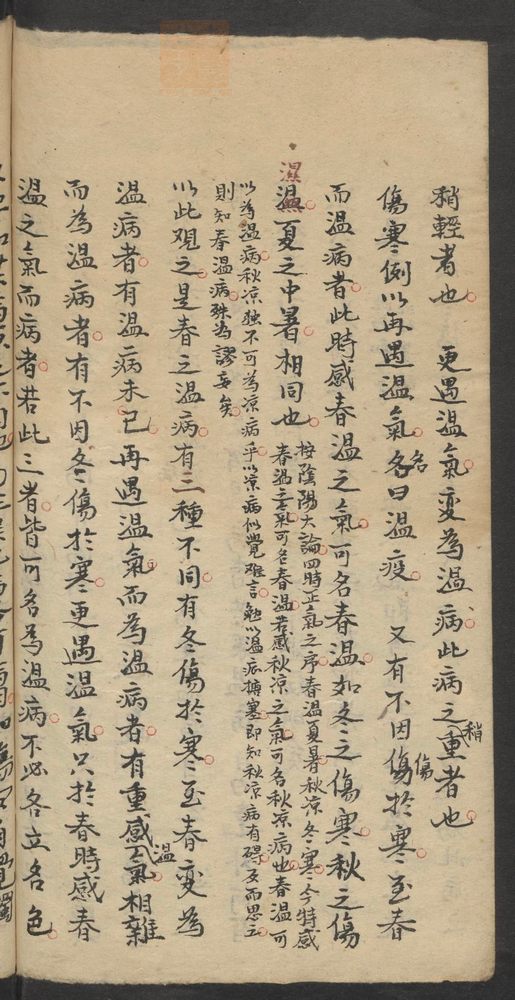 稍輕者也　更遇溫氣變為溫病此病之稍重者也
傷寒例以再遇溫氣名曰溫疫　又有不因傷於寒至春
而溫病者此時感春溫之氣可名春溫如冬之傷寒秋之傷
濕夏之中暑相同也
按陰陽大論四時正氣之序春溫夏暑秋涼冬寒今特感
春溫之氣可名春溫若感秋涼之氣可名秋涼病也春溫可
以為溫病秋涼獨不可為涼病乎以涼病似覺難言勉以溫疟搪塞即知秋涼病有碍反而思之
則知春溫病殊為謬妄矣
以此觀之是春之溫病有三種不同有冬傷於寒至春變為
溫病者有溫病未已再遇溫氣而為溫病者有重感溫氣相雜
而為溫病者有不因冬傷於寒更遇溫氣只於春時感春
溫之氣而病者若此三者皆可名為溫病不必各立名色